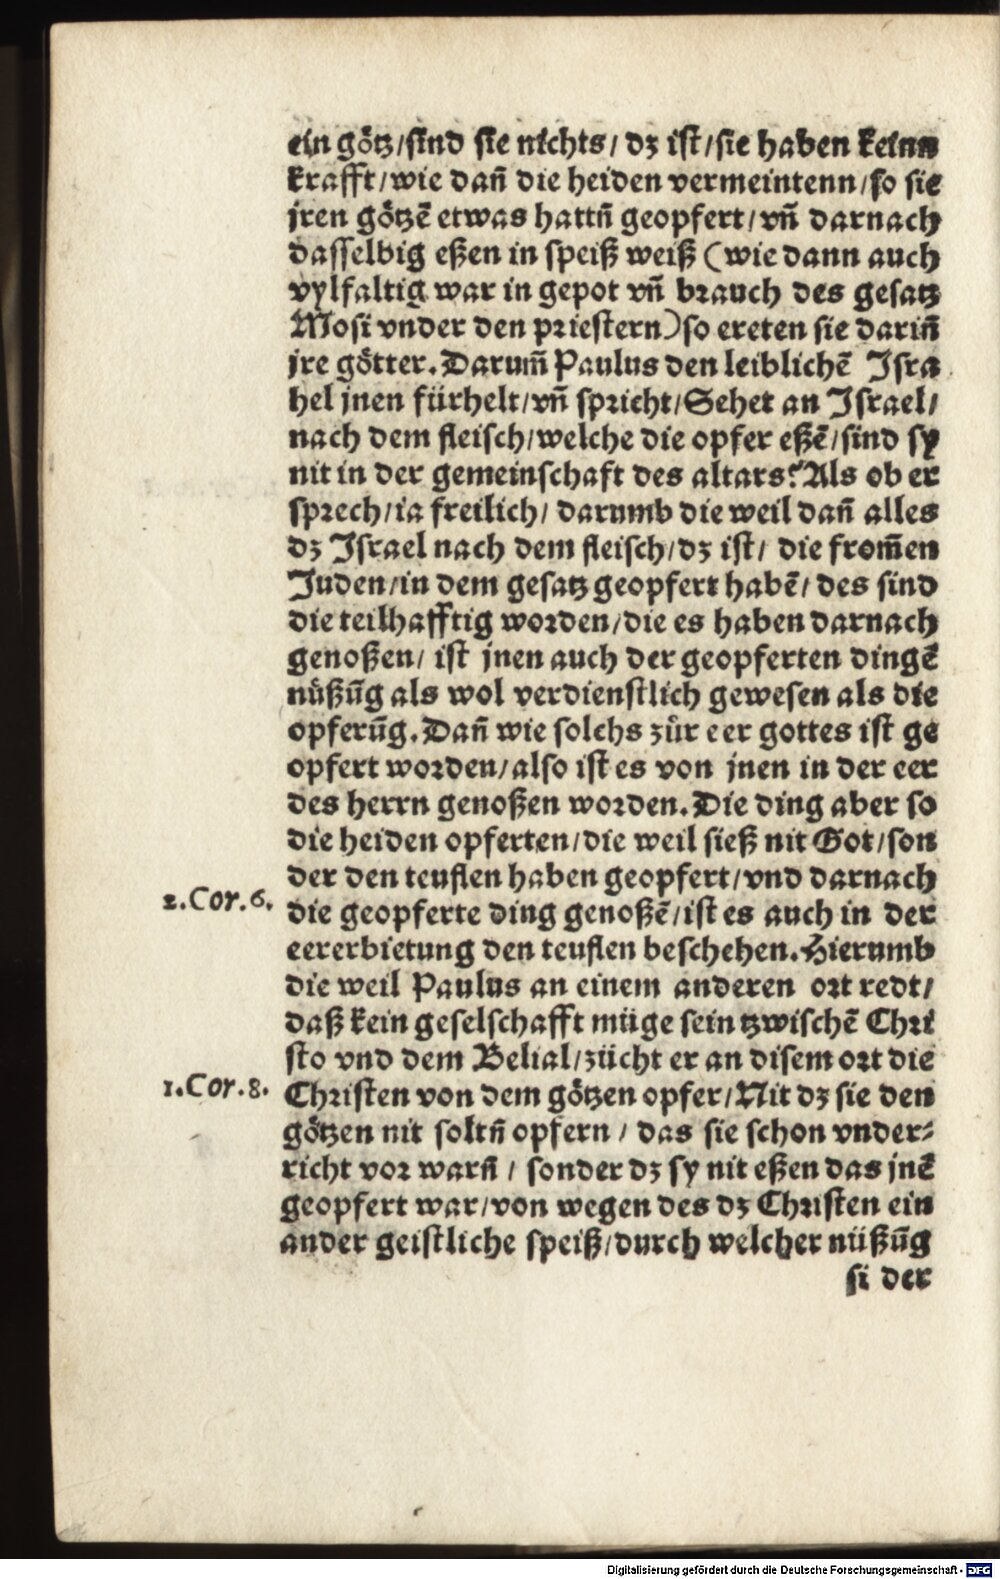 ein götz/sind sie nichts/ dz ist/sie haben keinn
krafft/wie dañ die heiden vermeintenn/so sie
jren götzē etwas hattñ geopfert/vñ darnach
dasselbig eßen in speiß weiß (wie dann auch
vylfaltig war in gepot vñ brauch des gesatz
Mosi vnder den priestern) so ereten sie dariñ
jre götter. Darum̄ Paulus den leiblichē Isra
hel jnen fürhelt/vñ spricht/Sehet an Israel/
nach dem fleisch/welche die opfer eßē/sind sy
nit in der gemeinschaft des altars? Als ob er
sprech/ia freilich/ darumb die weil dañ alles
dz Israel nach dem fleisch/dz ist/ die from̄en
Juden/in dem gesatz geopfert habē/ des sind
die teilhafftig worden/die es haben darnach
genoßen/ ist jnen auch der geopferten dingē
nüßūg als wol verdienstlich gewesen als die
opferūg. Dañ wie solchs zůr eer gottes ist ge
opfert worden/also ist es von jnen in der eer
des herrn genoßen worden. Die ding aber so
die heiden opferten/die weil sieß nit Got/son
der den teuflen haben geopfert/vnd darnach
2.Cor.6. die geopferte ding genoßē/ist es auch in der
eererbietung den teuflen beschehen. Hierumb
die weil Paulus an einem anderen ort redt/
daß kein geselschafft müge sein tzwischē Chri
sto vnd dem Belial/zücht er an disem ort die
1.Cor.8. Christen von dem götzen opfer/Nit dz sie den
götzen nit soltñ opfern / das sie schon vnder⸗
richt vor warñ / sonder dz sy nit eßen das jnē
geopfert war/von wegen des dz Christen ein
ander geistliche speiß/durch welcher nüßūg
si der
Digitalisierung gefördert durch die Deutsche Forschungsgemeinschaft - DFG